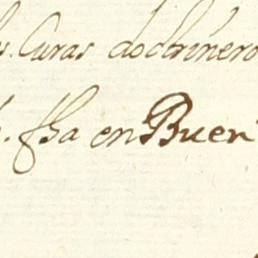 s. Curas doctrinero
. fha en Buen